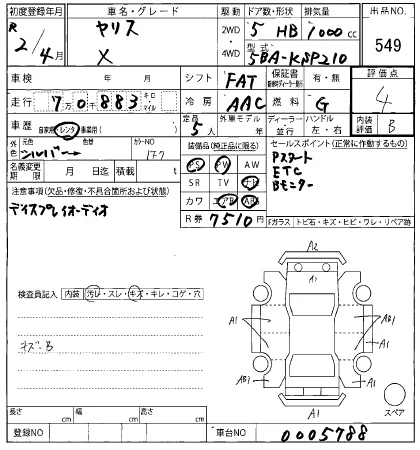 初度登録年月 車名・グレード 駆動 ドア数・形状 排気量 出品NO.
R 2/4月 ヤリス X 2WD・4WD 5 HB 1000 cc 549
型式 5BA-KSP210
車検 年 月 シフト FAT 保証書 有・無 評価点
走行 7万0千883 キロ・マイル 冷房 AAC 燃料 G 4
車歴 自家用 レンタ 事業用( ) 定員 5人 外車モデル 年 ディーラー 並行 ハンドル 左・右 内装評価 B
外色 元色 シルバー 色替 カラーNO 1F7 装備品(純正品に限る) セールスポイント(正常に作動するもの)
名義変更期限 月 日迄 積載 t PS PW AW Pスタート
SR TV ナビ ETC
注意事項(欠品・修復・不具合箇所および状態) カワ エアB ABS Bモニター
ディスプレイオーディオ R券 7510円 Fガラス トビ石・キズ・ヒビ・ワレ・リペア跡
A2
検査員記入 内装 汚レ・スレ・キズ・キレ・コゲ・穴 A1
AB1
A1 A1
キズ・B
AB1 A1
A1 スペア
長さ cm 幅 cm 高さ cm
登録NO 車台NO 0005788